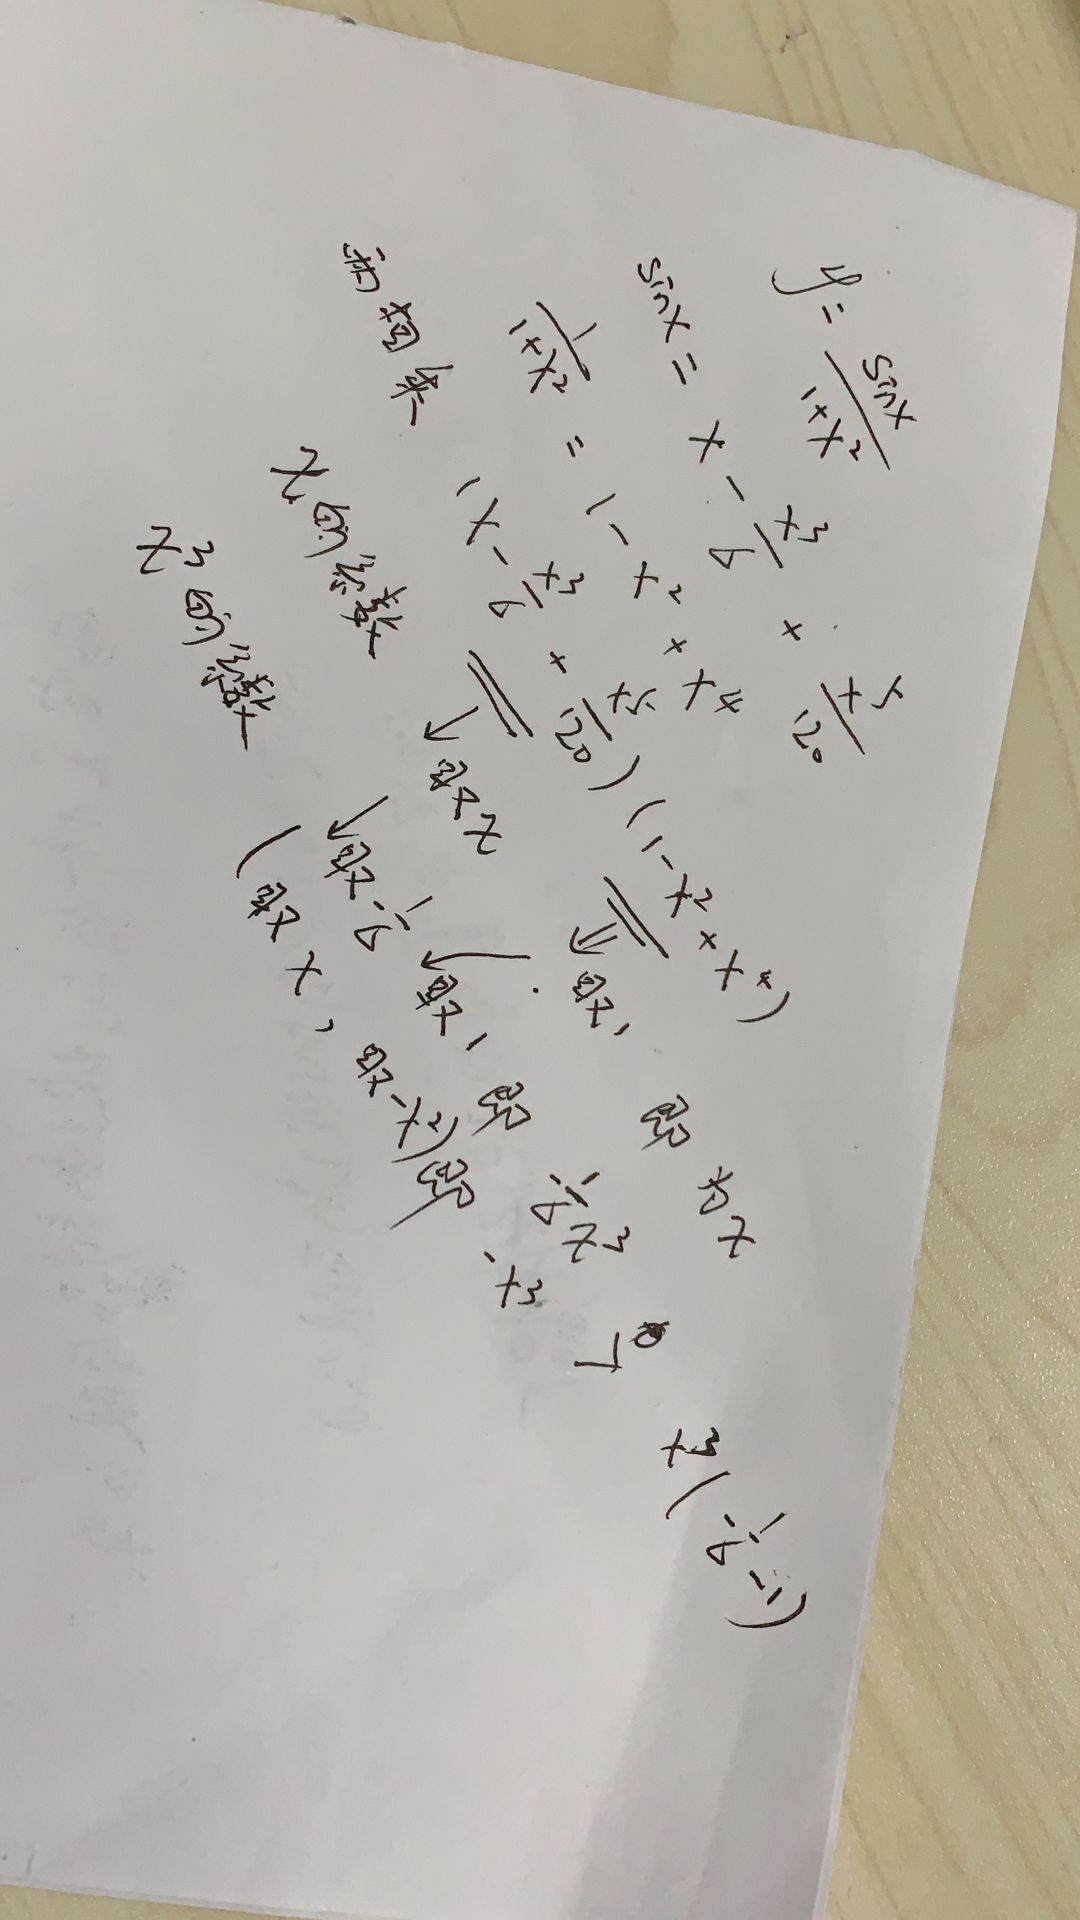 y = sinx / 1+x²
sinx = x - x³/6 + x⁵/120
1/1+x² = 1 - x² + x⁴
两相乘 (x - x³/6 + x⁵/120)(1 - x² + x⁴)
x的系数 → 取x → 取1 即为x
x³的系数 → 取-1/6 → 取1 即 -1/6 x³
(取x, 取-x²) 即 -x³
x³(-1/6 - 1)